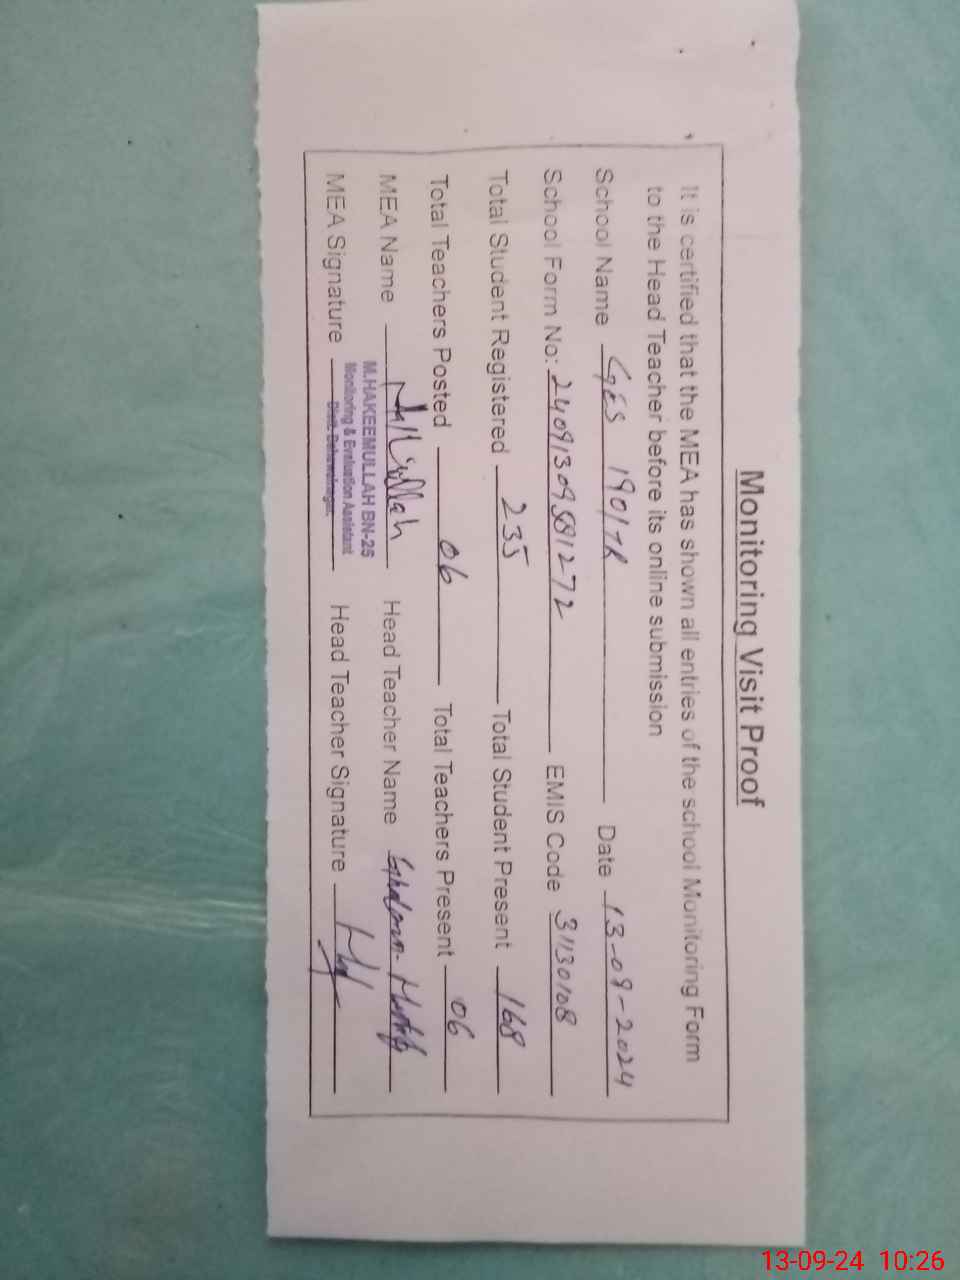 Monitoring Visit Proof
It is certified that the MEA has shown all entries of the school Monitoring Form
to the Head Teacher before its online submission
School Name GES 190/7R Date 13-09-2024
School Form No: 24091309581272 EMIS Code 31130108
Total Student Registered 235 Total Student Present 168
Total Teachers Posted 06 Total Teachers Present 06
MEA Name Head Teacher Name Ghulam
M.HAKEEMULLAH BN-25
Monitoring & Evaluation Assistant
Distt. Bahawalnagar.
MEA Signature Head Teacher Signature
13-09-24 10:26